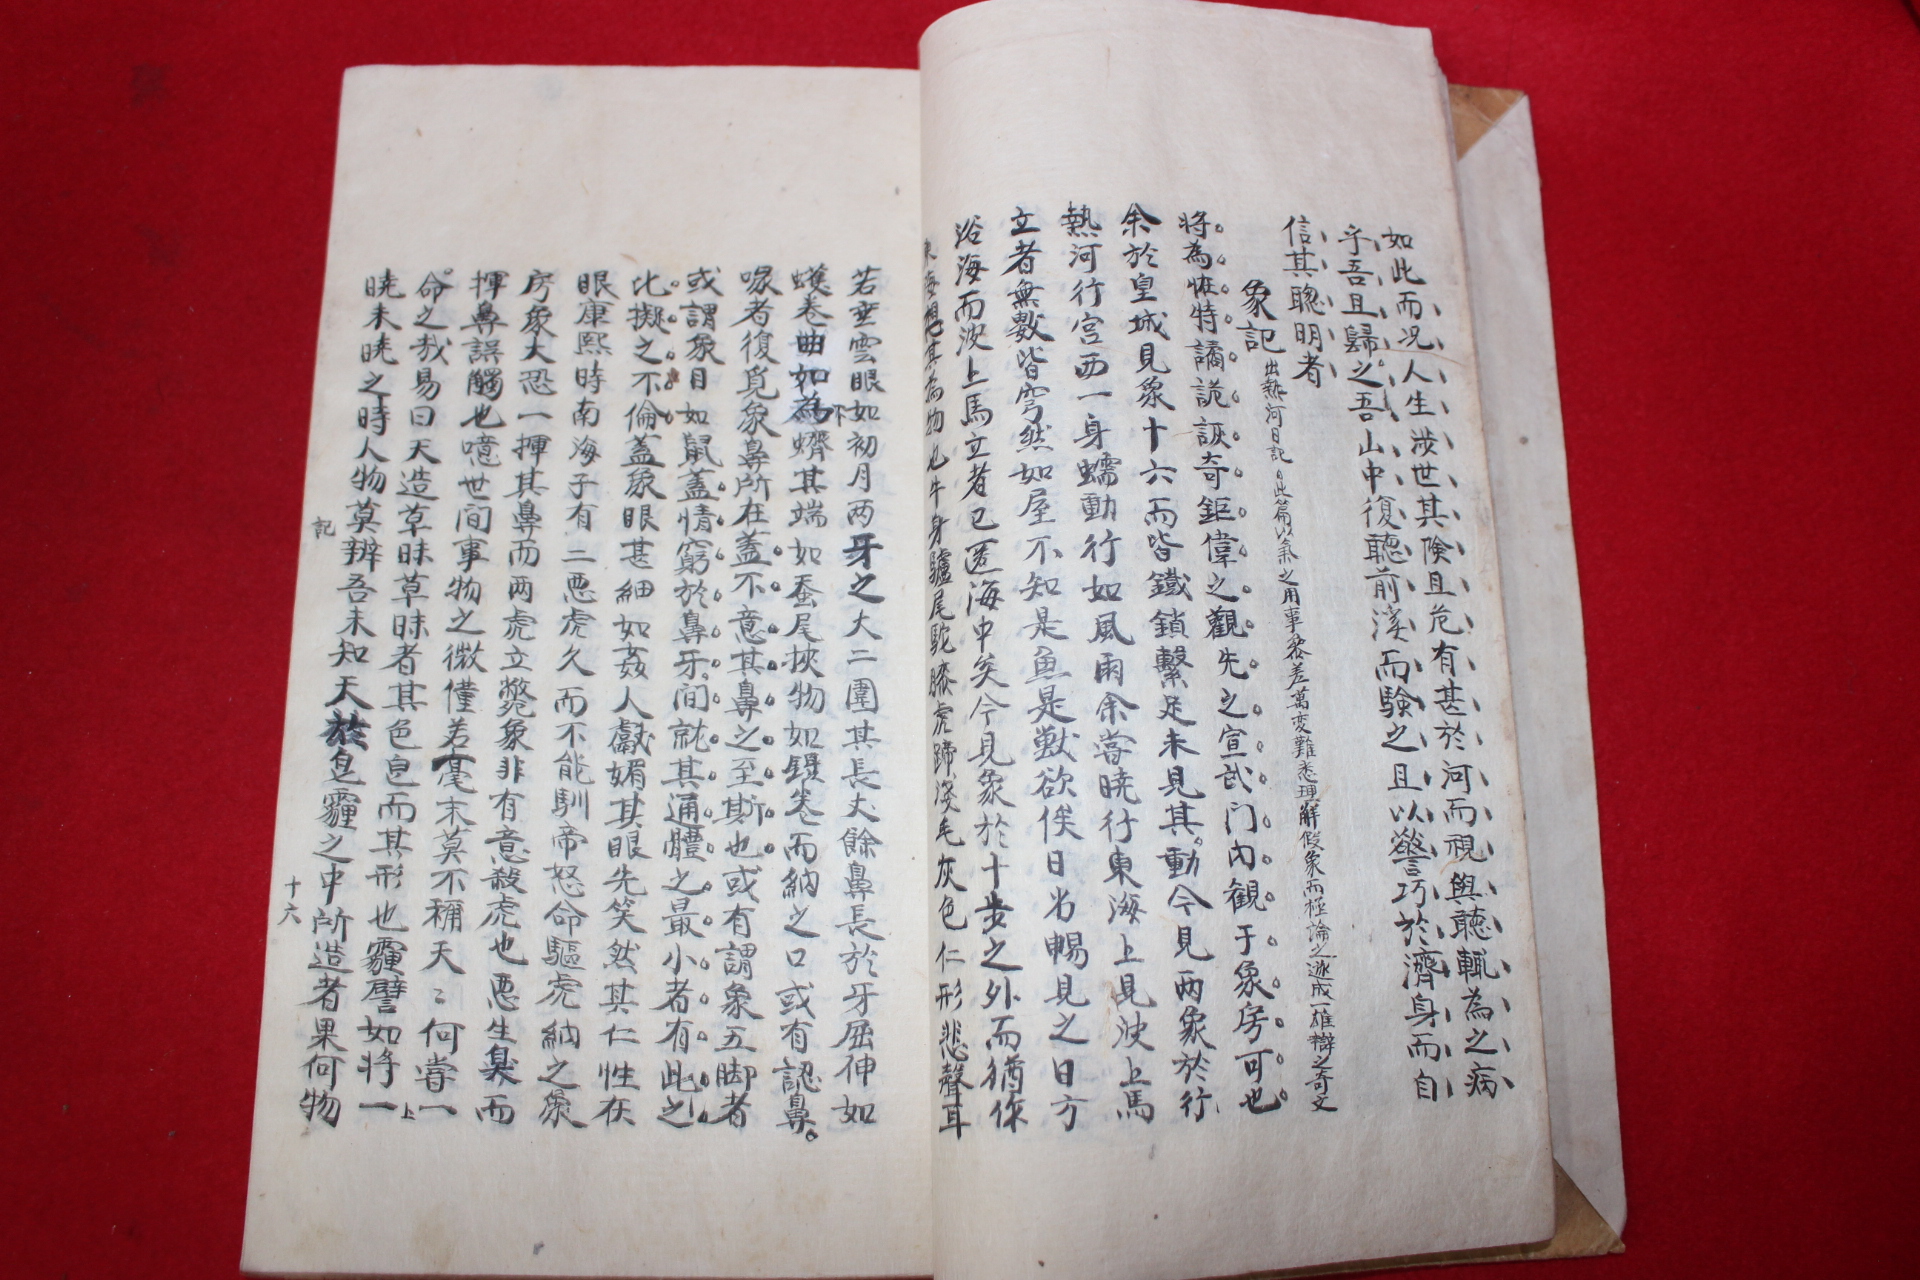 如此而况人生涉世其険且危有甚於河而視與聽輒為之病
乎吾且歸之吾山中復聽前溪而験之且以警巧於濟身而自
信其聰明者
象記 出熱河日記 此篇以氣之用事參差萬変難悉理觧假象而極論之遂成一雄辯之奇文
將為恠特譎詭詼奇鉅偉之觀先之宣武门內観于象房可也
余於皇城見象十六而皆鐵鎖繫足未見其動今見兩象於行
熱河行宮西一身蠕動行如風雨余嘗晓行東海上見波上馬
立者無數皆穹然如屋不知是魚是獸欲俟日出暢見之日方
浴海而波上馬立者已匿海中矣今見象於十步之外而猶作
東海想其為物也牛身驢尾駝膝虎蹄淺毛灰色仁形悲聲耳
若垂雲眼如初月兩牙之大二圍其長丈餘鼻長於牙屈伸如
蠖卷曲如為蠐其端如蚕尾挾物如鑷卷而納之口或有認鼻
喙者復覓象鼻所在蓋不意其鼻之至斯也或有謂象五脚者
或謂象目如鼠蓋情窮於鼻牙間就其通體之最小者有此之
比擬之不倫蓋象眼甚細如姦人獻媚其眼先笑然其仁性在
眼康熙時南海子有二悪虎久而不能馴帝怒命驅虎納之象
房象大恐一揮其鼻而兩虎立斃象非有意殺虎也悪生臭而
揮鼻誤觸也噫世间事物之微僅若毫末莫不稱天〻何嘗一
命之哉易曰天造草昧草昧者其色皀而其形也霾譬如將一
晓未晓之時人物莫辨吾未知天於皀霾之中所造者果何物
下
上
記
十六